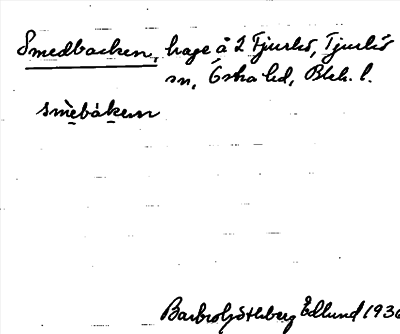 Smedbacken, hage å 2 Tjurkö, Tjurkö
sn, Östra hd, Blek. l.
smèbákɐn
Barbro Götlberg Edlund 1936